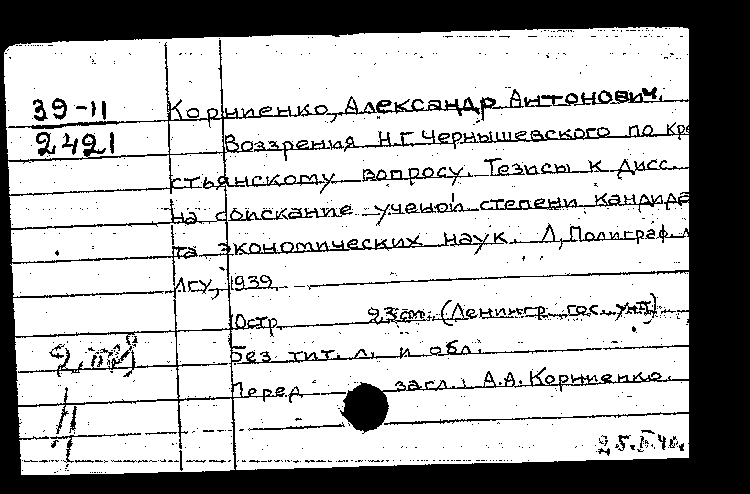 39-11
2421
Корниенко, Александр Антонович.
Воззрения Н.Г. Чернышевского по кре
стьянскому вопросу. Тезисы к дисс.
на соискание ученой степени кандида
та экономических наук. Л, Полиграф. л
ЛГУ, 1939.
10стр. 23см. (Ленингр. гос. ун-т)
Без тит. л. и обл.
Перед загл.: А.А. Корниенко.